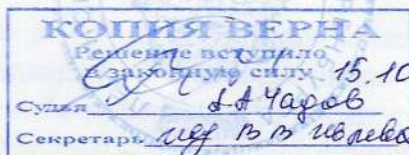 КОПИЯ ВЕРНА
Решение вступило
в законную силу 15.10
Судья А.А Чадов
Секретарь В В